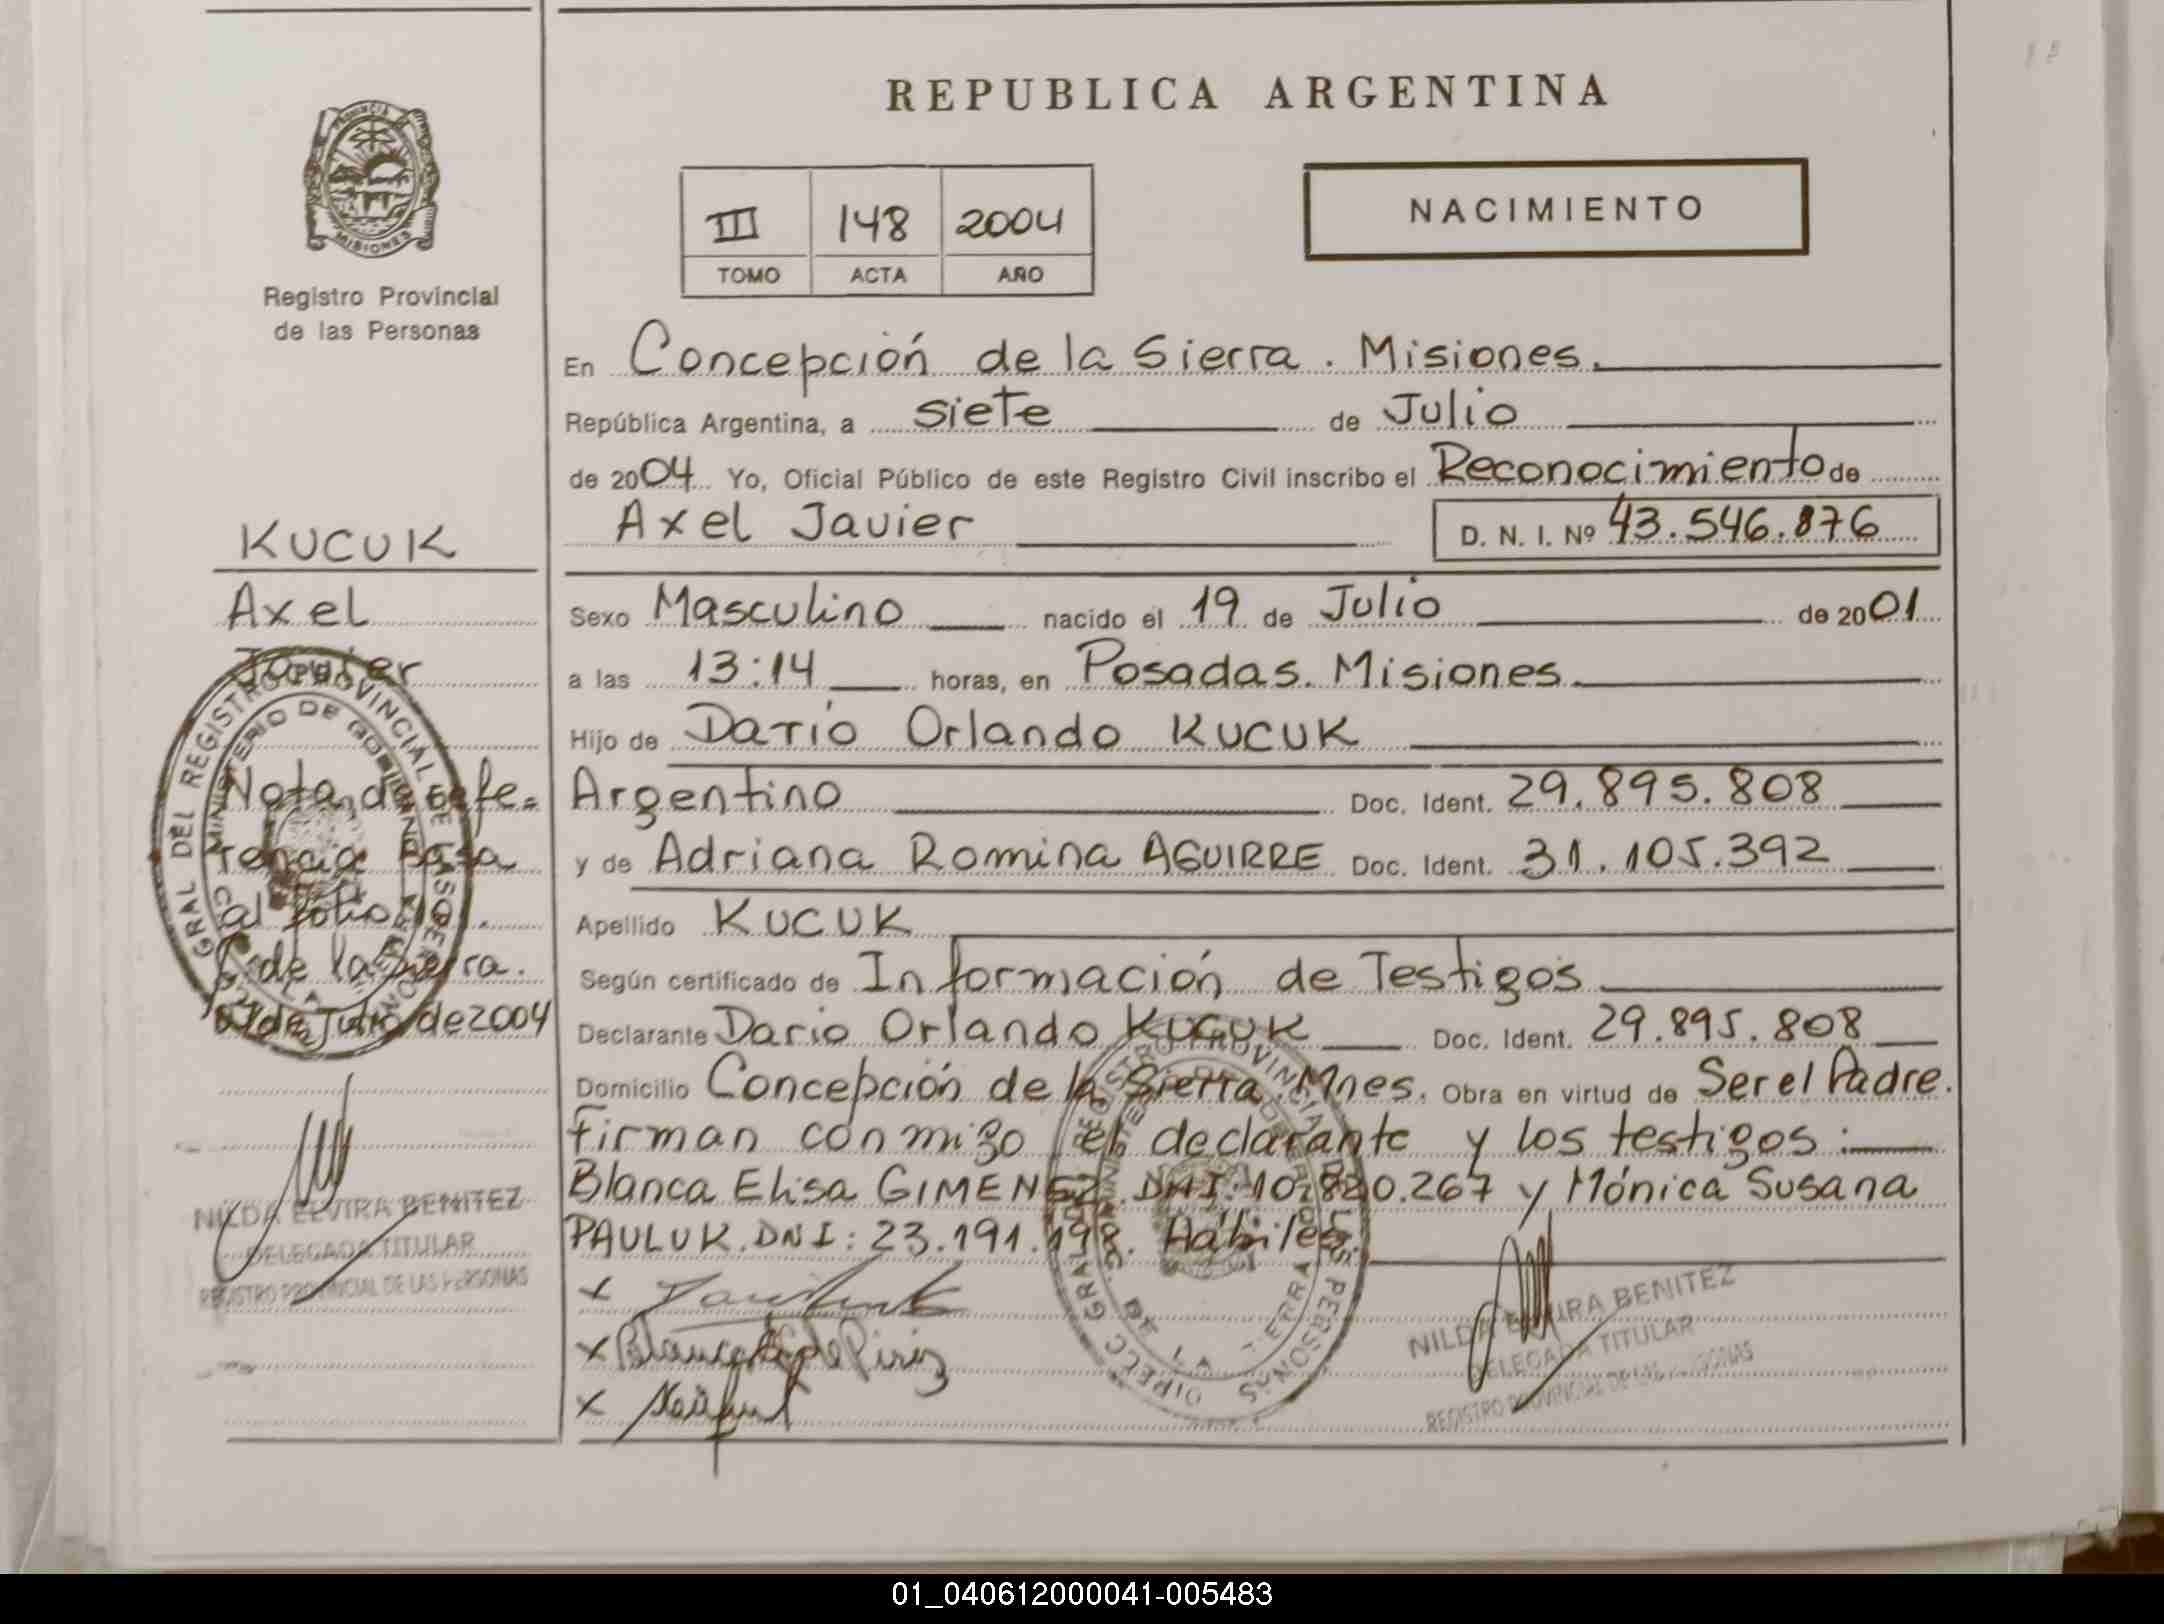 REPUBLICA ARGENTINA
PROVINCIA DE
MISIONES
Registro Provincial
de las Personas
III 148 2004
TOMO ACTA AÑO
NACIMIENTO
En Concepción de la Sierra. Misiones.
República Argentina, a siete de Julio
de 2004 Yo, Oficial Público de este Registro Civil inscribo el Reconocimiento de
Axel Javier D. N. I. Nº 43.546.876
Sexo Masculino nacido el 19 de Julio de 2001
a las 13:14 horas, en Posadas. Misiones.
Hijo de Dario Orlando KUCUK
Argentino Doc. Ident. 29.895.808
y de Adriana Romina AGUIRRE Doc. Ident. 31.105.392
Apellido KUCUK
Según certificado de Información de Testigos
Declarante Dario Orlando KUCUK Doc. Ident. 29.895.808
Domicilio Concepción de la Sierra. Mnes. Obra en virtud de Ser el Padre.
Firman conmigo el declarante y los testigos:
Blanca Elisa GIMENEZ. DNI: 10.820.267 y Mónica Susana
PAULUK. DNI: 23.191.198. Hábiles.
x
x Blanca de Piriz
x
NILDA ELVIRA BENITEZ
DELEGADA TITULAR
REGISTRO PROVINCIAL DE LAS PERSONAS
KUCUK
Axel
Javier
Nota de Refe=
rencia Pasa
al folio
C. de la Sierra.
07 de Julio de 2004
NILDA ELVIRA BENITEZ
DELEGADA TITULAR
REGISTRO PROVINCIAL DE LAS PERSONAS
01_040612000041-005483